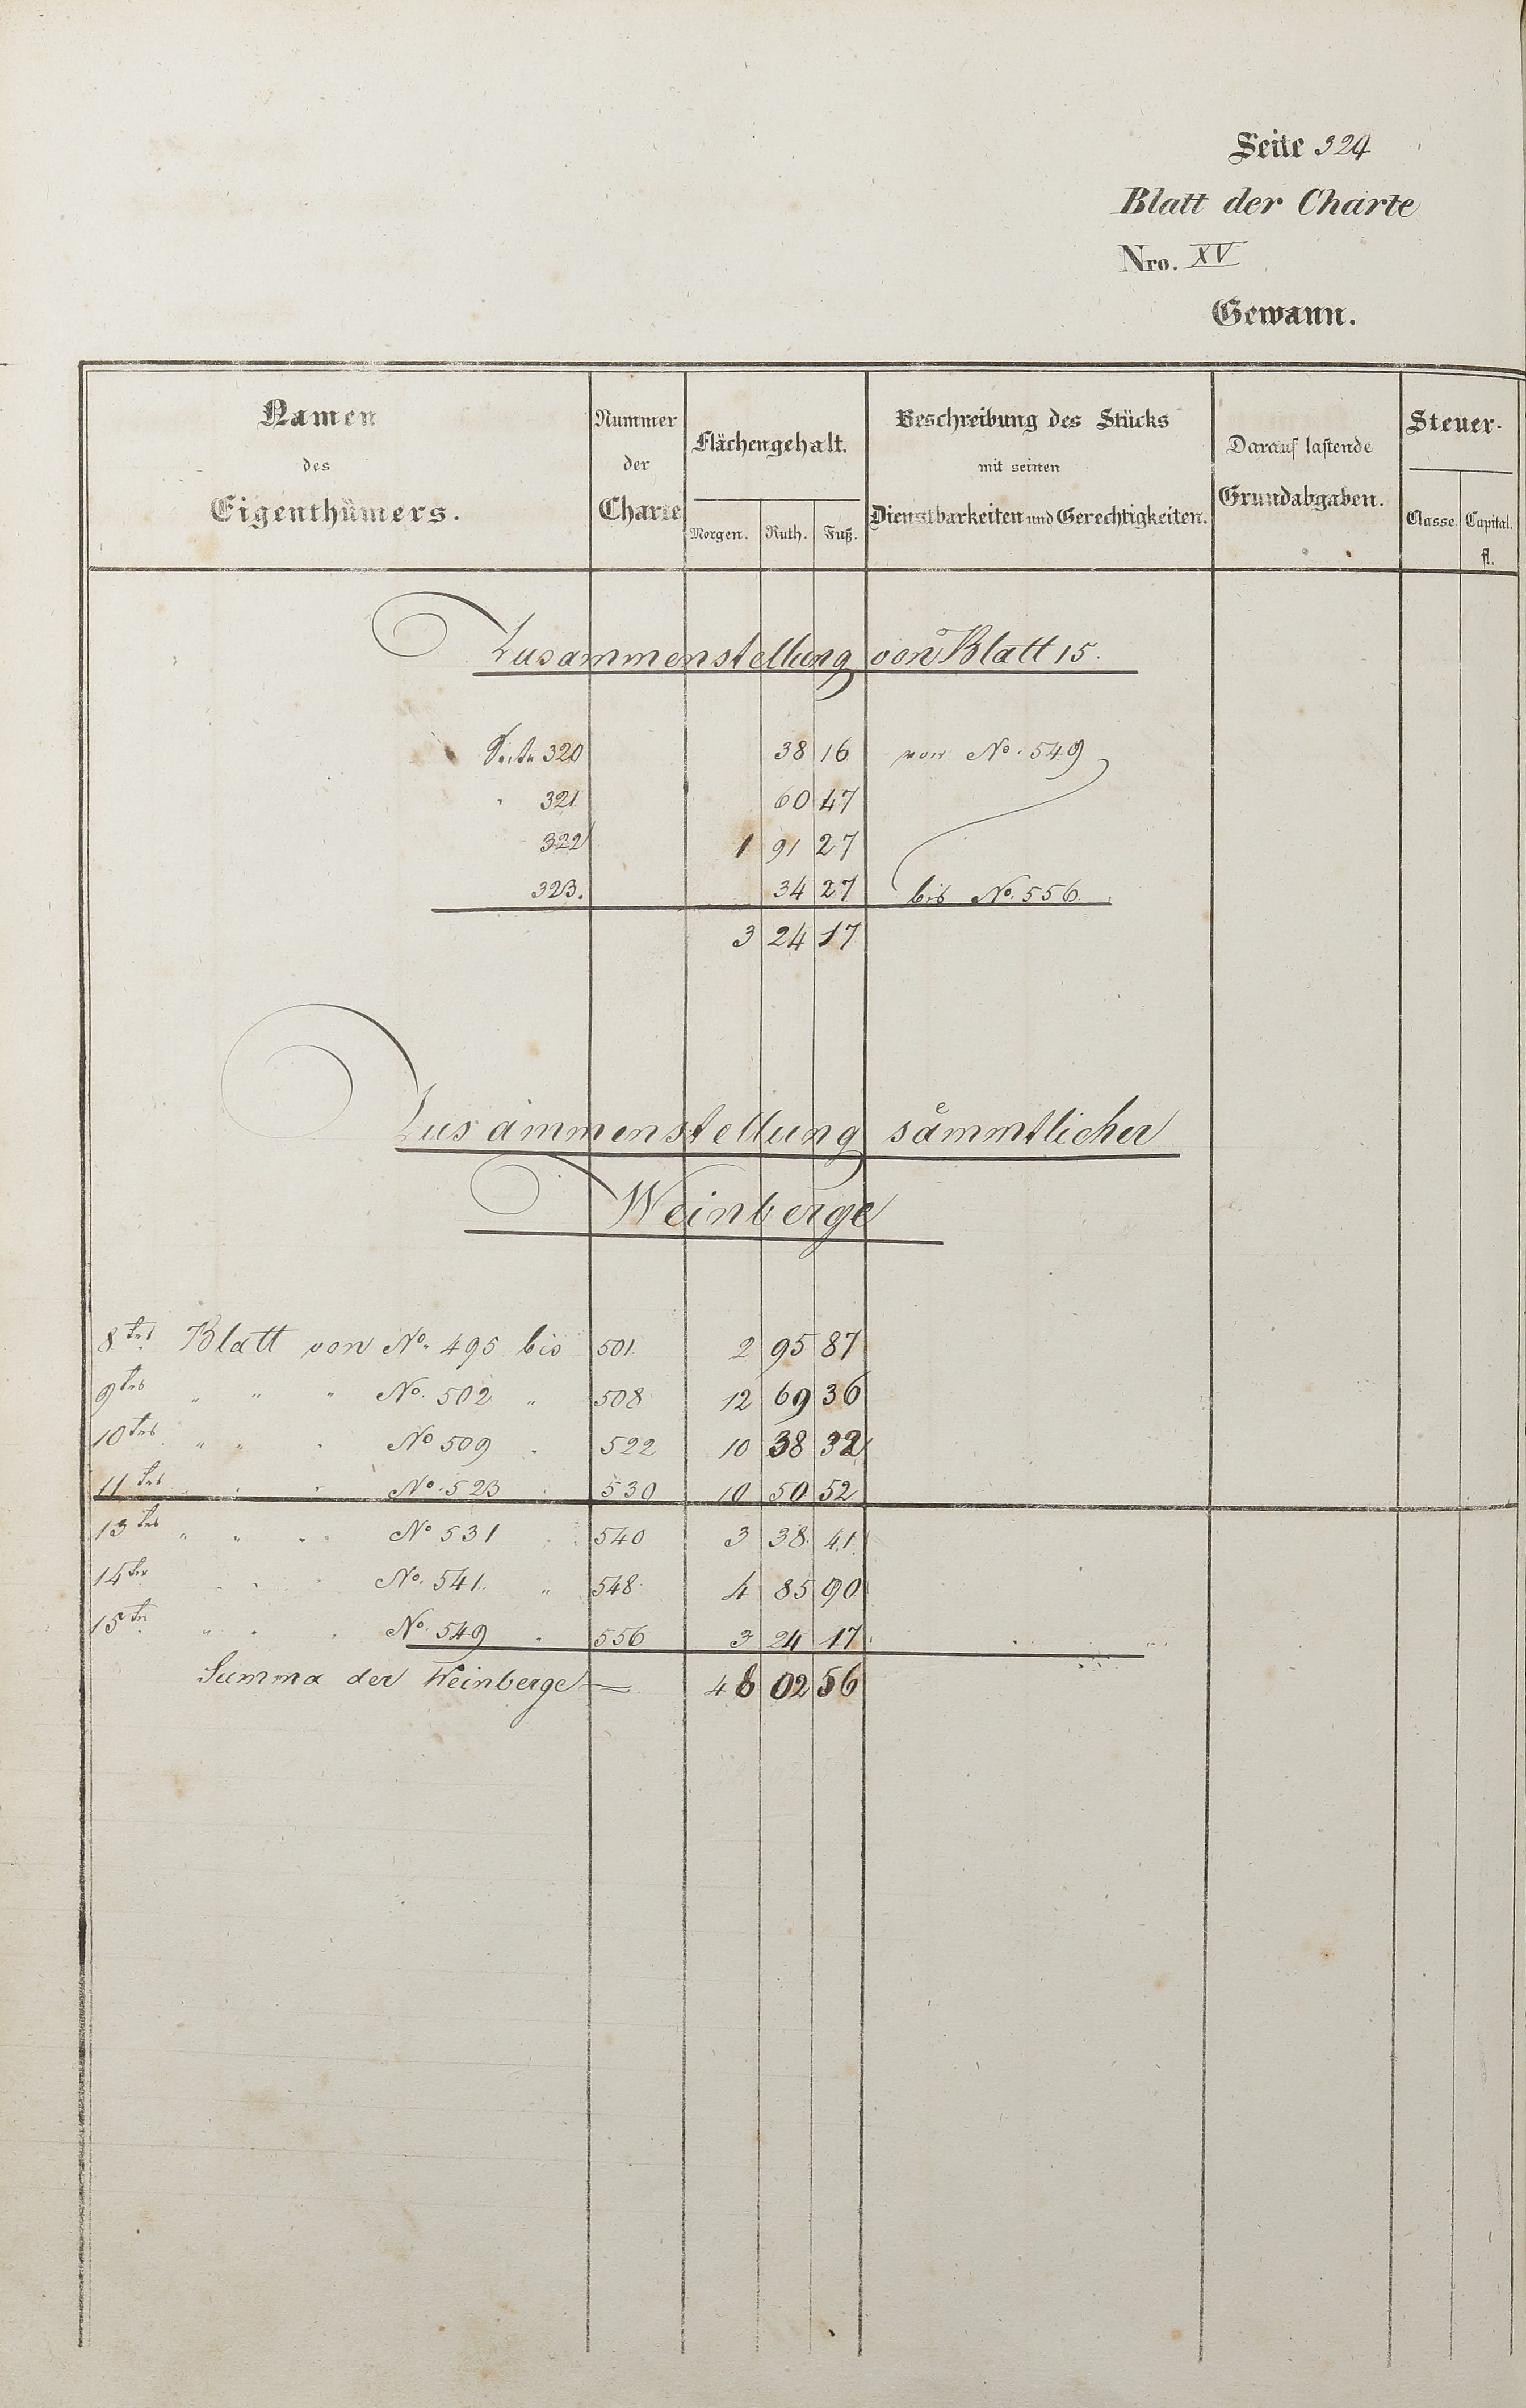 Seite 324
Blatt der Charte
Nro. XV
Gewann.
Namen des Eigenthümers.
Nummer der Charte
Flächengehalt.
Morgen. Ruth. Fuß.
Beschreibung des Stücks mit seinen Dienstbarkeiten und Gerechtigkeiten.
Darauf lastende Grundabgaben.
Steuer-
Classe. Capital. fl.
Zusammenstellung von Blatt 15.
Seite 320 38 16 von No. 549
" 321 60 47
322 1 91 27
323. 34 27 bis No. 556.
3 24 17
Zusammenstellung sämmtlicher
Weinberge
8tes Blatt von No. 495 bis 501. 2 95 87
9tes " " " No. 502 " 508 12 69 36
10tes " " " No 509 " 522 10 38 32
11tes " " " No. 523 " 530 10 50 52
13tes " " " No 531 " 540 3 38 41
14tes " " " No. 541. " 548 4 85 90
15tes " " " No. 549 " 556 3 24 17
Summa der Weinberge = 48 02 56